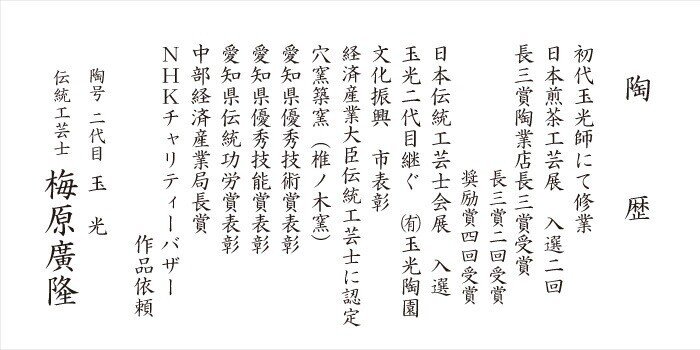 陶歴
初代玉光師にて修業
日本煎茶工芸展 入選二回
長三賞陶業店長三賞受賞
長三賞二回受賞
奨励賞四回受賞
日本伝統工芸士会展 入選
玉光二代目継ぐ ㈲玉光陶園
文化振興 市表彰
経済産業大臣伝統工芸士に認定
穴窯築窯（椎ノ木窯）
愛知県優秀技術賞表彰
愛知県優秀技能賞表彰
愛知県伝統功労賞表彰
中部経済産業局長賞
NHKチャリティーバザー
作品依頼
陶号 二代目 玉光
伝統工芸士 梅原廣隆